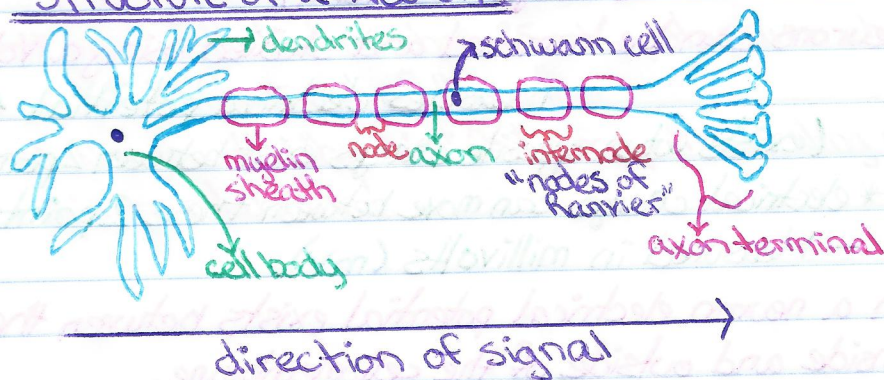 dendrites
schwann cell
myelin
sheath
node
axon
internode
"nodes of
Ranvier"
axon terminal
cell body
direction of signal